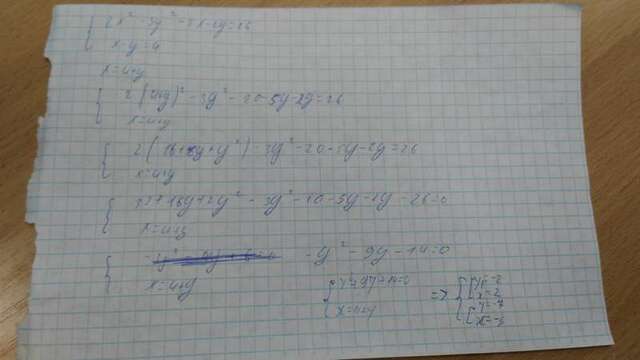 2x² - 3y² - 5x - 2y = 26
x - y = 4
x = 4+y
2(4+y)² - 3y² - 20 - 5y - 2y = 26
x = 4+y
2(16+8y+y²) - 3y² - 20 - 5y - 2y = 26
x = 4+y
32 + 16y + 2y² - 3y² - 20 - 5y - 2y - 26 = 0
x = 4+y
-y² - 9y - 14 = 0
x = 4+y
y² + 9y + 14 = 0
x = 4+y
=> y = -2
x = 2
y = -7
x = -3